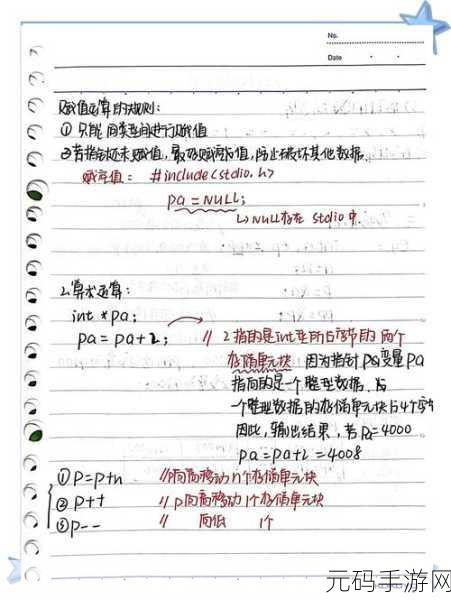 No.
Date
赋值运算的规则:
① 只能同类型间进行赋值
②若指针还未赋值,最好赋空值,防止破坏其他数据.
赋空值: #include<stdio.h>
pa=NULL;
↳NULL存在 stdio中.
2.算术运算:
int *pa;
pa=pa+2; // 2指的是int型所占字节的两个
存储单元块 因为指针pa变量pa
指向的是一个整型数据,占
一个整型数据的存储单元块占4个字节
因此,输出结果,若pa=4000
pa=pa+2=4008
①P=P+n //P向高移动n个存储单元块
②P++ // P向高移动1个存储单元块
③P-- // 向低 1个
元码手游网